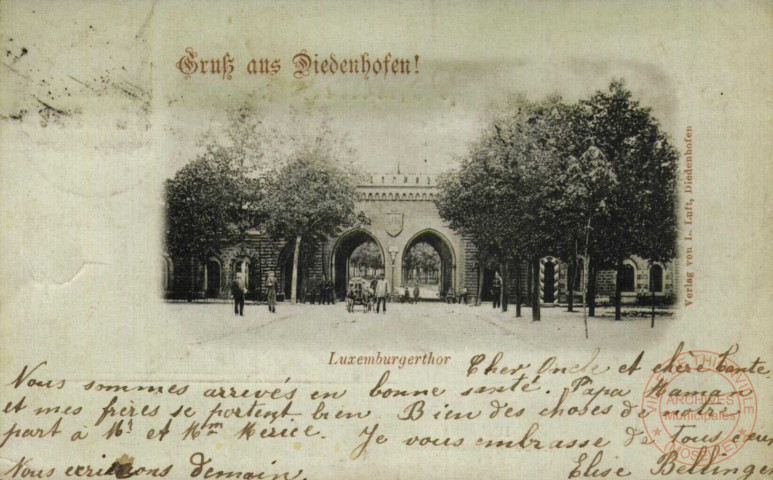 Gruß aus Diedenhofen!
Verlag von L. Luft, Diedenhofen
Luxemburgerthor
Cher Oncle et chère Tante,
Nous sommes arrivés en bonne santé. Papa Maman
et mes frères se portent bien. Bien des choses de notre
part à Mr et Mme
Je vous embrasse de tous
Nous écrirons demain.
Elise Bellinger
VILLE THIONVILLE
ARCHIVES
Municipales
MOSELLE